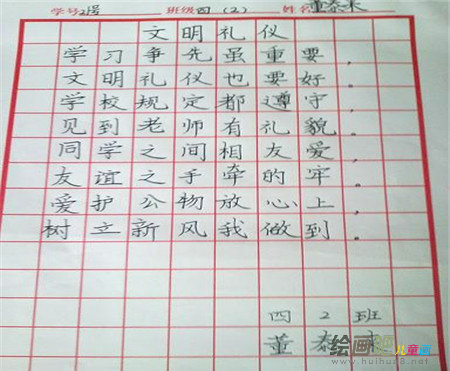 学号2号 班级四（2） 姓名董泰来
文明礼仪
学习争先虽重要，
文明礼仪也要好。
学校规定都遵守，
见到老师有礼貌。
同学之间相友爱，
友谊之手牵的牢。
爱护公物放心上，
树立新风我做到。
四2班
董泰来
绘画 儿童画
www.huihua8.net